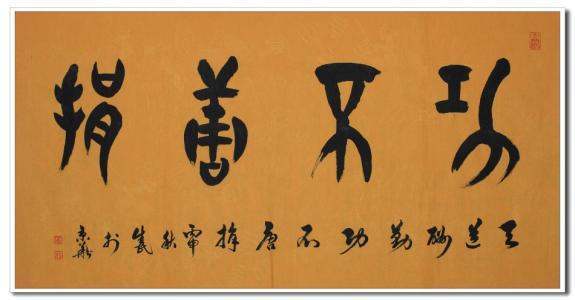 功不唐捐
天道酬勤功不唐捐秋於京